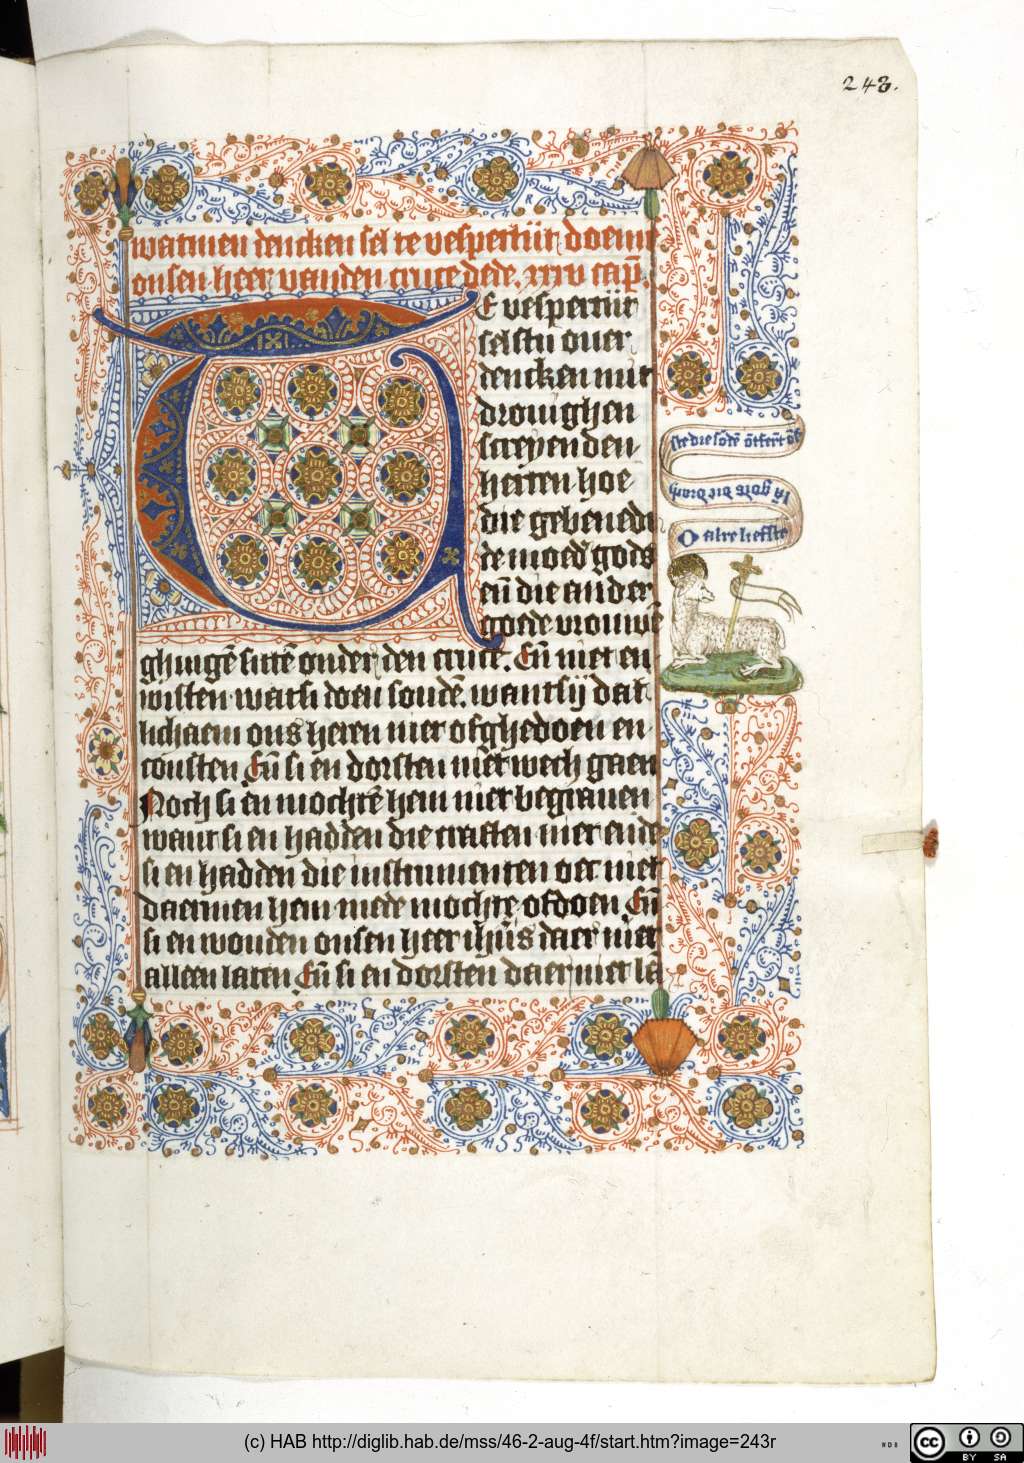 243.
watmen dencken sel te vespertijt doemē
onsen heer vanden cruce dede. xxxv cap̄.
TE vespertijt
selstu ouer
dencken mit
drouighen
screyenden
herten hoe
die gebenedi
te moed̕ gods
eñ die ander
goede vrouwē
ghingē sittē onder den cruce. Eñ niet en
wisten wat si doen soudē. want sij dat
lichaem ons heren niet ofghedoen en
consten Eñ si en dorsten niet wech gaen
Noch si en mochtē hem niet begrauen
want si en hadden die craften niet ende
si en hadden die instrumenten oec niet
daermen hem mede mochte ofdoen Eñ
si en wouden onsen heer ihūs daer niet
alleen laten Eñ si en dorsten daer niet lā
O alre liefste
lā gods die drach
ste die
(c) HAB http://diglib.hab.de/mss/46-2-aug-4f/start.htm?image=243r
WDB
cc
BY SA